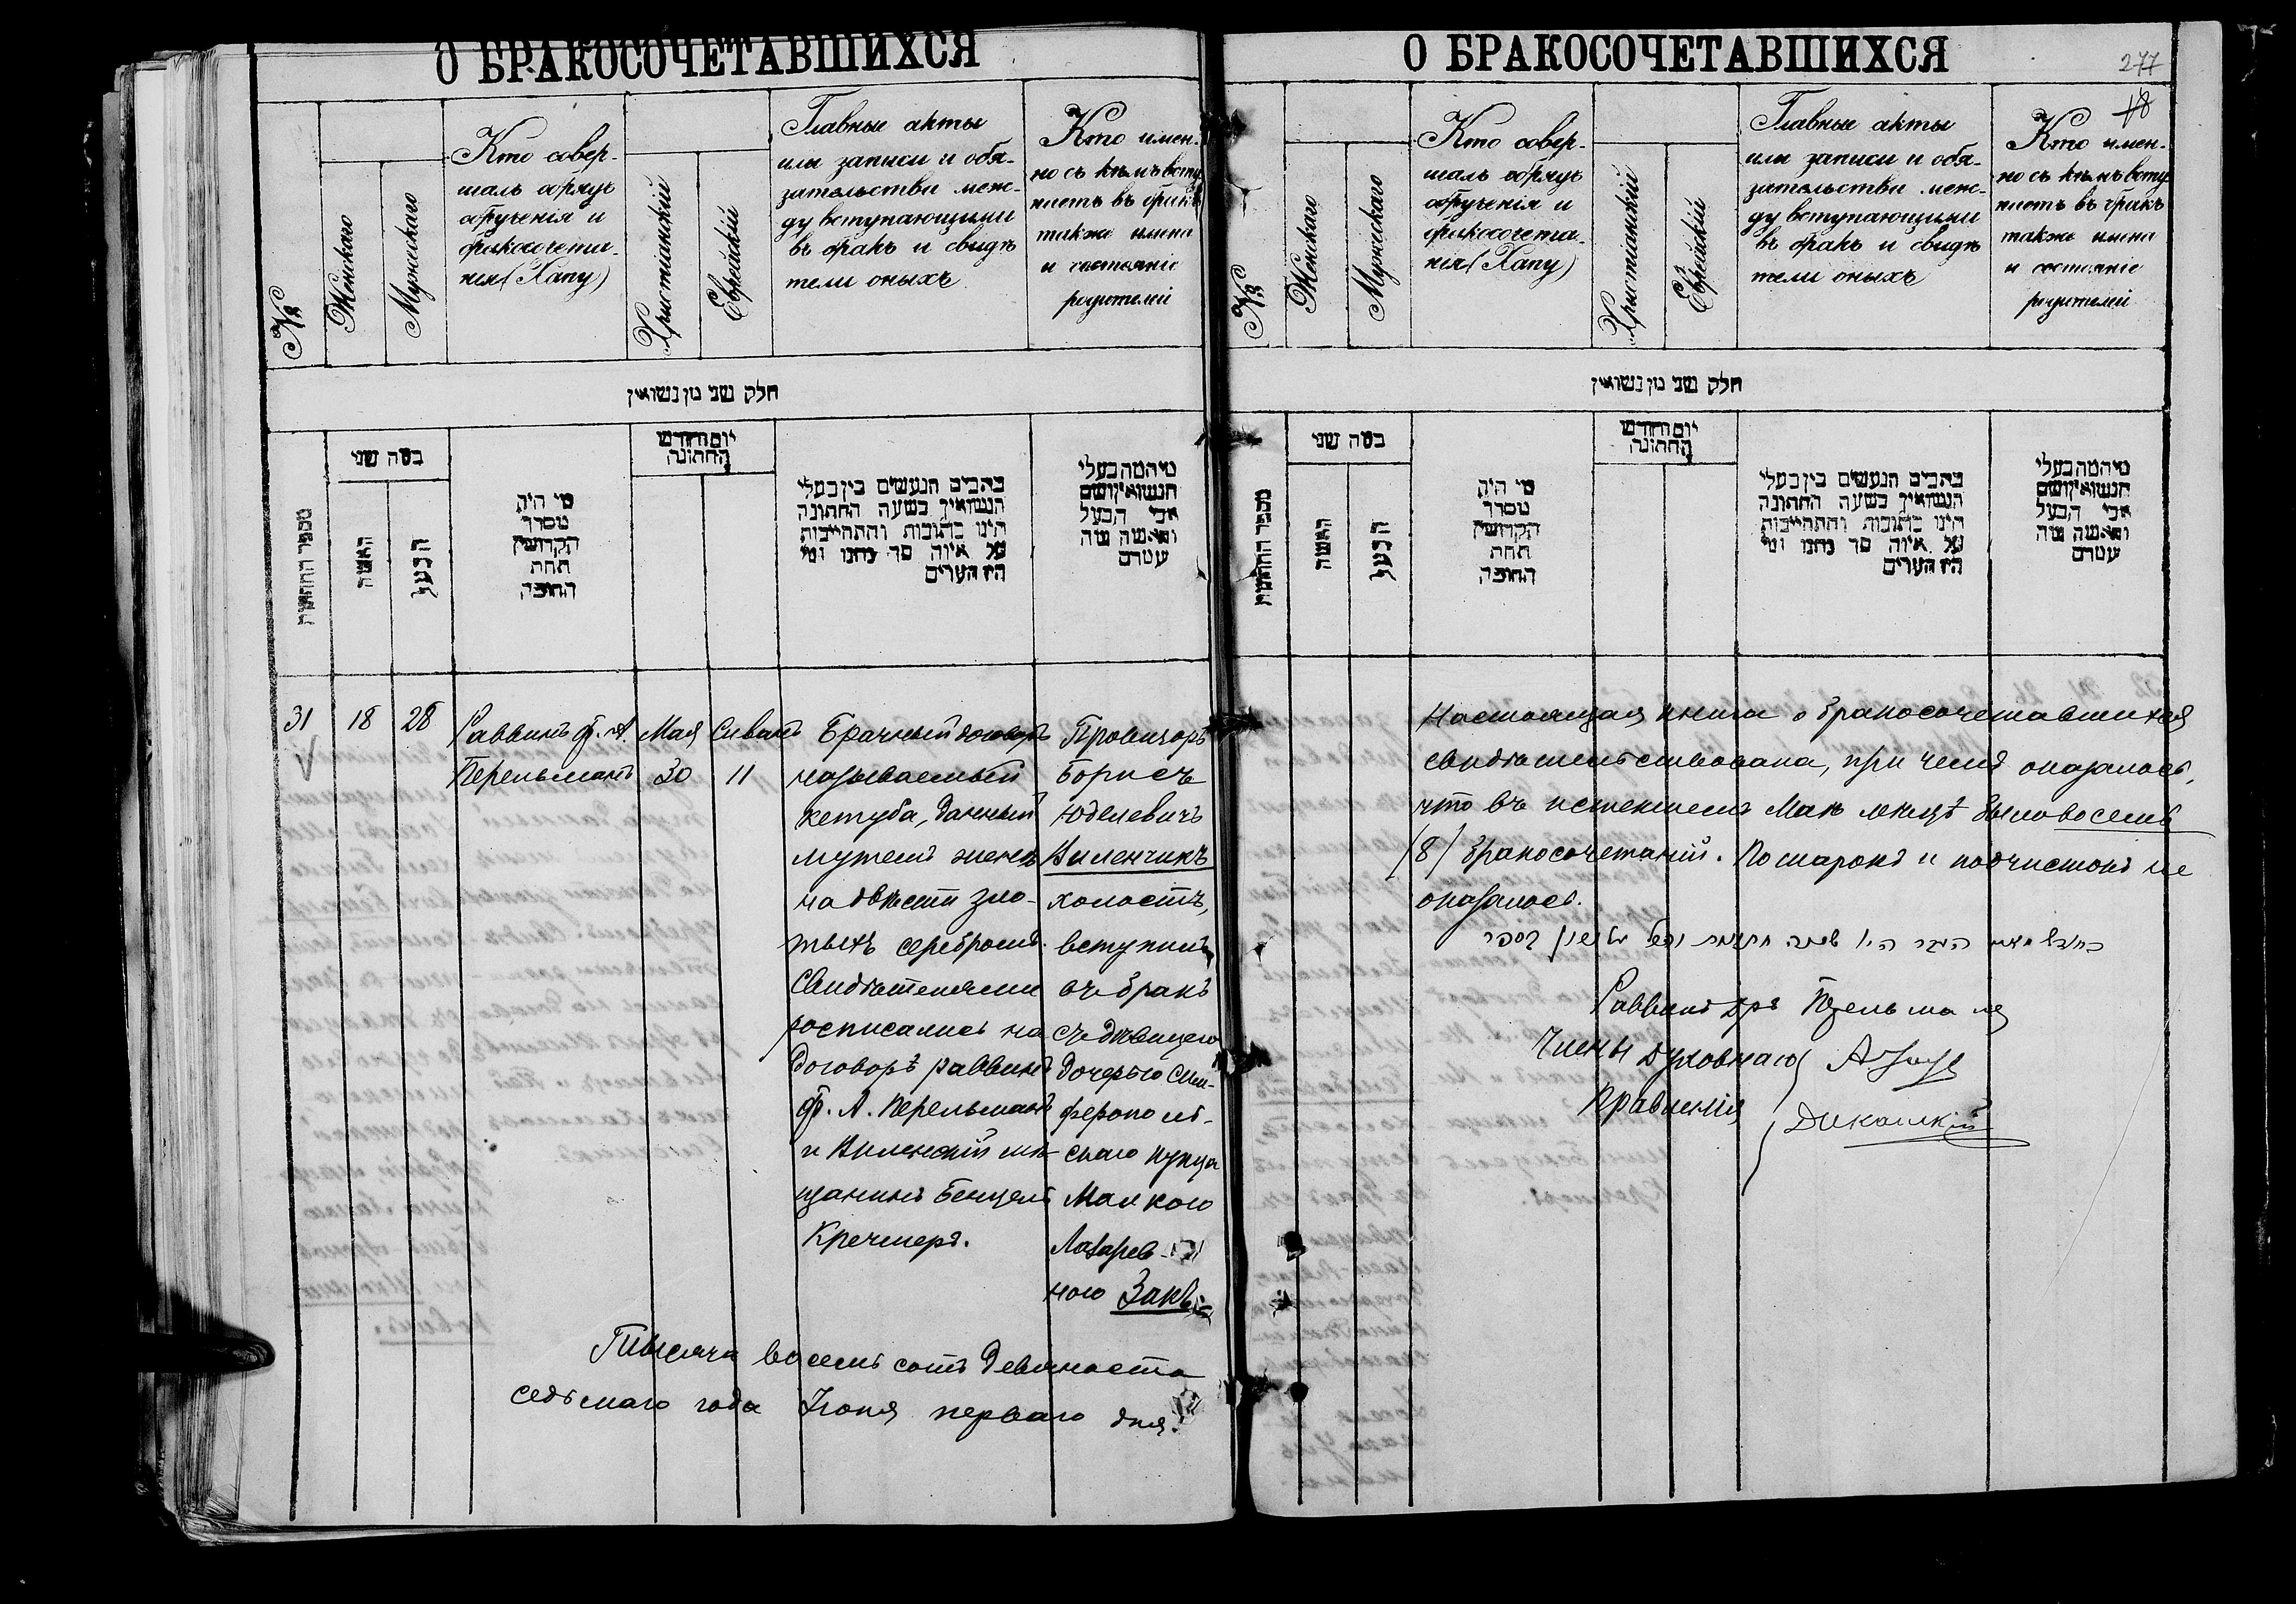 О БРАКОСОЧЕТАВШИХСЯ
№
Женскаго
Мужескаго
Кто совер-
шалъ обрядъ
обрученія и
бракосочета-
нія (Хапу)
Христіанскій
Еврейскій
Главные акты
или записи и обя-
зательства меж-
ду вступающими
въ бракъ и свидѣ
тели оныхъ
Кто имен-
но съ кѣмъ всту
паетъ въ бракъ
также имена
и состояніе
родителей
חלק שני מן נשואין
מספר החתונות
כמה שני
האשה
הבעל
מי היה
מסדר
הקדושין
תחת
החופה
יום וחודש
החתונה
כתבים הנעשים בין בעלי
הנשואין בשעה החתונה
הינו כתובות והתחייבות
על איזה סך נתנו ומי
היו הערים
מי המה בעלי
הנשואין ושם
אבי הבעל
והאשה מה
עטרם
31
18
28
Раввинъ Ф. А.
Перельманъ
Мая
30
Сиванъ
11
Брачный договоръ
называемый
кетуба, данный
мужемъ женѣ
на двѣсти зло-
тыхъ серебромъ.
Свидѣтелями
росписались на
договорѣ раввинъ
Ф. А. Перельманъ
и Виленскій мѣ-
щанинъ Бенцелъ
Кречмеръ.
Провизоръ
Борисъ
Юделевичъ
Виленчикъ
холостъ,
вступилъ
въ бракъ
съ дѣвицею
дочерью Сим-
ферополь-
скаго купца
Малкою
Лазарев-
ною Закъ
Тысяча восемь сотъ девяноста
седьмаго года Іюня перваго дня.
О БРАКОСОЧЕТАВШИХСЯ
277
18
№
Женскаго
Мужескаго
Кто совер-
шалъ обрядъ
обрученія и
бракосочета-
нія (Хапу)
Христіанскій
Еврейскій
Главные акты
или записи и обя-
зательства меж-
ду вступающими
въ бракъ и свидѣ
тели оныхъ
Кто имен-
но съ кѣмъ всту
паетъ въ бракъ
также имена
и состояніе
родителей
חלק שני מן נשואין
מספר החתונות
כמה שני
האשה
הבעל
מי היה
מסדר
הקדושין
תחת
החופה
יום וחודש
החתונה
כתבים הנעשים בין בעלי
הנשואין בשעה החתונה
הינו כתובות והתחייבות
על איזה סך נתנו ומי
היו הערים
מי המה בעלי
הנשואין ושם
אבי הבעל
והאשה מה
עטרם
Настоящая книга о бракосочетавшихся
свидѣтельствована, при чемъ оказалось,
что въ истекшемъ Маѣ месяцѣ было восемь
(8) бракосочетаній. Помарокъ и подчистокъ не
оказалось.
Раввинъ Дръ Перельманъ
Члены Духовнаго
Правленія